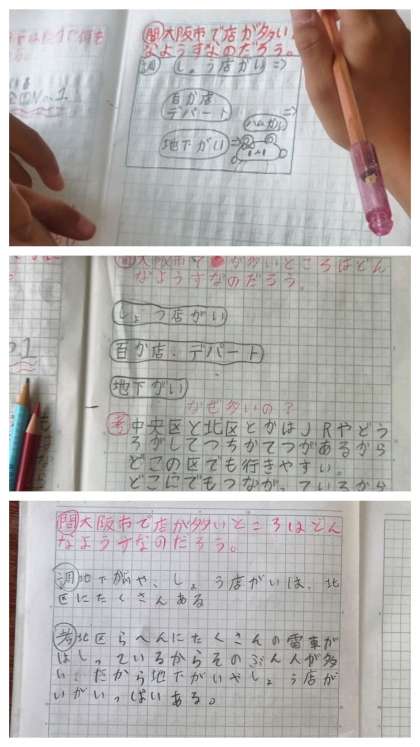 問大阪市で店が多い
なようすなのだろう。
調 しょう店がい⇒
百か店
デパート
⇒
地下がい⇒
問大阪市で が多いところはどん
なようすなのだろう。
しょう店がい
百か店・デパート
地下がい
なぜ多いの?
考中央区と北区とかはJRやどう
ろがしてつちかてつがあるから
どこの区でも行きやすい。
どこにでもつながっているから
問大阪市で店が多いところはどん
なようすなのだろう。
調地下がいや、しょう店がいは、北
区にたくさんある
考北区らへんにたくさんの電車が
はしっているからそのぶん人が多
い、だから地下がいやしょう店が
いがいっぱいある。